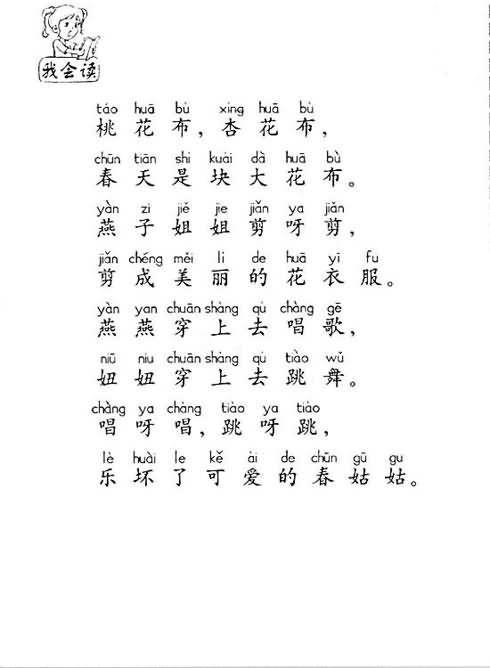 我会读
táo huā bù xìng huā bù
桃花布，杏花布，
chūn tiān shì kuài dà huā bù
春天是块大花布。
yàn zi jiě jie jiǎn ya jiǎn
燕子姐姐剪呀剪，
jiǎn chéng měi lì de huā yī fu
剪成美丽的花衣服。
yàn yan chuān shàng qù chàng gē
燕燕穿上去唱歌，
niū niu chuān shàng qù tiào wǔ
妞妞穿上去跳舞。
chàng ya chàng tiào ya tiào
唱呀唱，跳呀跳，
lè huài le kě ài de chūn gū gu
乐坏了可爱的春姑姑。